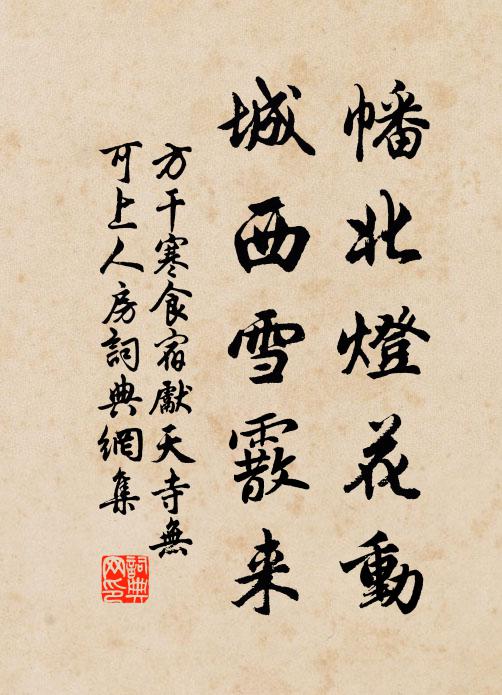 幡北燈花動
城西雪霰来
方干寒食宿獻天寺無
可上人房詞典網集
詞典
网印